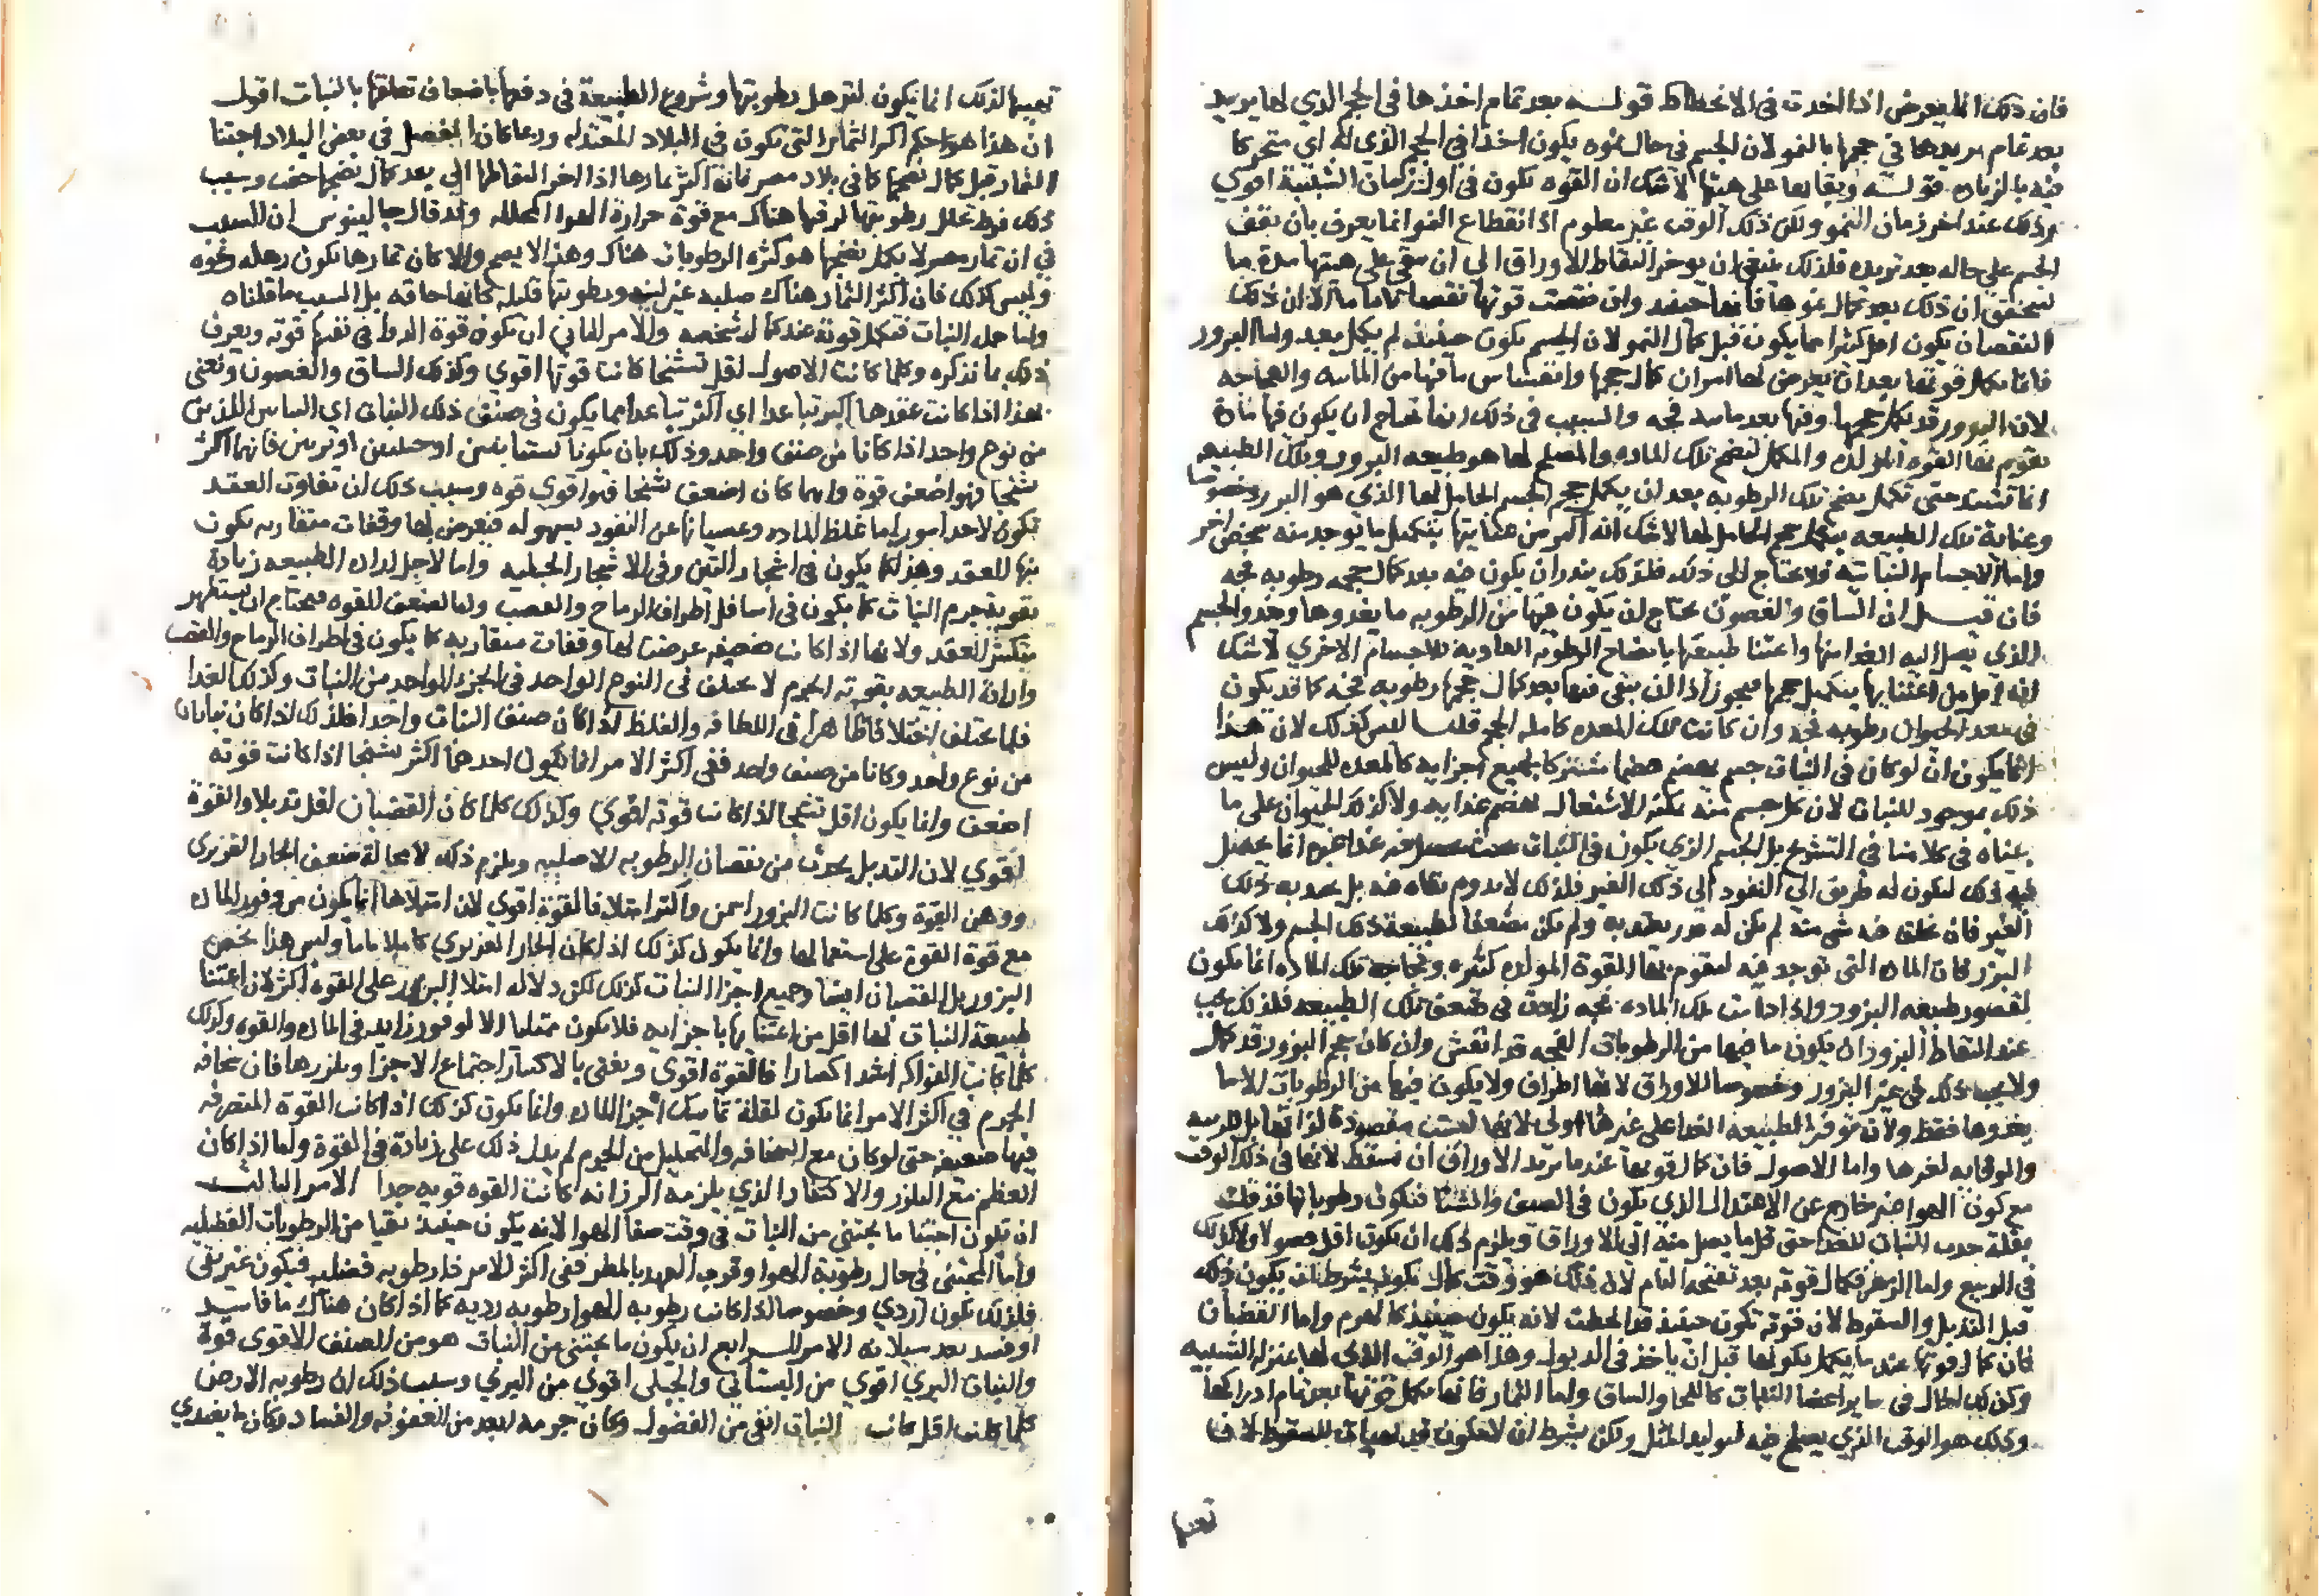 فان ذلك انما يعرض اذا اخذت فى الانحطاط قولـه بعد تمام اخذها فى الحجم الذي لها يريد
بعد تمام تزيدها في حجمها بالنمو لان الجسم في حال نموه يكون اخذا في الحجم الذي له اي متحركا
فيه بالزياده قولـه وبقايها على هيئتها لا شك ان القوه تكون في اول زمان الشبيبة اقوي
من ذلك عند اخر زمان النمو ولكن ذلك الوقت غير معلوم اذ انقطاع النمو انما يعرف بان يقف
الجسم على حاله بعد تزيده فلذلك ينبغي ان يوخر التقاط الاوراق الى ان تبقى على هيئتها مدة ما
ليتحقق ان ذلك بعد كمال نموها فانها حينيذ وان نقصت قوتها نقصانا ما الا ان ذلك
النقصان يكون اقل كثيرا مما يكون قبل كمال النمو لان الجسم يكون حينيذ لم يكمل بعد واما البزور
فانما تكمل قوتها بعد ان يعرض لها امران كمال حجمها وانفشاش ما فيها من المائيه والفجاجه
لان البزور قد يكمل حجمها وفيها بعد مائيه فجه والسبب في ذلك انها تحتاج ان يكون فيها مادة
تقوم بها القوه المولده والمكمل لنضج تلك الماده والمصلح لها هو طبيعه البزور وتلك الطبيعه
انما تشتد حتى تكمل نضج تلك الرطوبه بعد ان يكمل حجم الجسم الحامل لها الذي هو البزر وخصوصا
وعناية تلك الطبيعه بتكميل حجم الحامل لها لا شك انه اكبر من عنايتها بتكميل ما يوجد منه شخص اخر
واما الاجسام النباتيه فلا تحتاج الى ذلك فلذلك يندر ان يكون فيه بعد كمال حجمه رطوبه فجه
فان قيـل ان الساق والغصون تحتاج ان يكون فيها من الرطوبه ما يغذوها ويغذو الجسم
الذي يصل اليه الغذا منها واعتنا طبيعتها بانضاج الرطوبه الغاذية للاجسام الاخري لا شك
انه اقل من اعتنايها بتكميل حجمها فيجوز اذا ان يبقى فيها بعد كمال حجمها رطوبه فجه كما قد يكون
في معد الحيوان رطوبه فجه وان كانت تلك المعده كامله الحجم قلنـا ليس كذلك لان هذا
انما يكون ان لو كان في النبات جسم يهضم هضما مشتركا لجميع اجزايه كالمعده للحيوان وليس
ذلك بموجود للنبات لان كل جسم منه يمكنه الاشتغال بهضم غذايه ولا كذلك الحيوان على ما
بيناه في كلامنا في التشريح بل الجسم الذي يكون في النبات بحيث يحصل فيه غذا غيره انما يحصل
فيه ذلك ليكون له طريق الي النفوذ الي ذلك الغير فلذلك لا يدوم بقاه فيه بل يجذبه ذلك
الغير فان تخلف فيه شي منه لم يكن له قدر يعتد به ولم يكن مضعفا لطبيعة ذلك الجسم ولا كذلك
البزر فان الماده التى توجد فيه لتقوم بها القوة المولده كثيره وفجاجة تلك الماده انما يكون
لقصور طبيعه البزور واذا دامت تلك الماده فجه زادت في ضعف تلك الطبيعه فلذلك يجب
عند التقاط البزور ان يكون ما فيها من الرطوبات الفجه قد انفش وان كان حجم البزور قد كمل
ولا يجب ذلك في غير البزور وخصوصا الاوراق لانها اطراف ولا يكون فيها من الرطوبات الا ما
يغذوها فقط ولان توفر الطبيعه الغذا على غيرها اولى لانها ليست مقصودة لذاتها بل للزينه
والوقايه لغيرها واما الاصول فان كمال قوتها عندما تريد الاوراق ان تسقط لانها في ذلك الوقت
مع كون الهوا غير خارج عن الاعتدال الذي يكون في الصيف والشتا فتكون رطوباتها قد قلت
بقلة جذب النبات للغذا حتى قل ما يصل منه الى الاوراق ويلزم ذلك ان يكون اقل فضولا ولا كذلك
في الربيع واما الزهر فكمال قوته بعد تفتحه التام لان ذلك هو وقت كمال تكونه بشرط ان يكون ذلك
قبل التذبل والسقوط لان قوته تكون حينيذ قد انحطت لانه يكون حينيذ كالهرم واما القضبان
فان كمال قوتها عند ما يكمل تكونها قبل ان ياخذ في الذبول وهذا هو الوقت الذي لها بمنزله الشبيبه
وكذلك الحال في ساير اعضا النبات كاللحا والساق واما الثمار فانها تكمل قوتها بعد تمام ادراكها
وذلك هو الوقت الذي يصلح فيه لتوليد المثل ولكن بشرط ان لا تكون قد تهيات للسقوط لان
تهيها
تهيها لذلك انما يكون لترهل رطوبتها وشروع الطبيعة في دفعها باضعاف تعلقها بالنبات اقول
ان هذا هو حكم اكثر الثمار التى تكون في البلاد المعتدله وربما كان الافضل في بعض البلاد اجتنا
الثمار قبل كمال نضجها كما في بلاد مصر فان اكثر ثمارها اذا اخر التقاطها الي بعد كمال نضجها جفت وسبب
ذلك فرط تحلل رطوبتها لرقتها هناك مع قوة حرارة الهوا المحلله وقد قال جالينوس ان السبب
في ان ثمار مصر لا يكمل نضجها هو كثره الرطوبات هناك وهذا لا يصح والا كان ثمارها تكون رهله رخوه
وليس كذلك فان اكثر الثمار هناك صلبه غير لينه ورطوبتها قليله كانها جافه بل السبب ما قلناه
واما جمل النبات فتكمل قوته عند كمال شخصه والامر الثاني ان تكون قوة الدوا في نفسها قويه ويعرف
ذلك بما نذكره وكلما كانت الاصول اقل تشنجا كانت قوتها اقوي وكذلك الساق والغصون ونعنى
بهذا اذا كانت عقدها اكثر تباعدا اي اكثر تباعدا مما يكون في صنف ذلك النبات اي النباتين اللذين
من نوع واحد اذا كانا من صنف واحد وذلك بان يكونا بستانيين او جبليين او بريين فانهما اكثر
تشنجا فهو اضعف قوة وايهما كان اضعف تشنجا فهو اقوي قوه وسبب ذلك ان تقارب العقد
يكون لاحد امور اما غلظ الماده وعصيانها عن النفوذ بسهوله فيعرض لها وقفات متقاربه تكون
فيها للعقد وهذا كما يكون في اشجار التين وفى الاشجار الجبليه واما لاجل اراده الطبيعه زيادة
تقوية جرم النبات كما يكون في اسافل اطراف الرماح والقصب واما لضعف القوه فيحتاج ان يستظهر
بتكثير العقد ولانها اذا كانت ضعيفه عرضت لها وقفات متقاربه كما يكون في اطراف الرماح والقصب
وارادة الطبيعه بقوته الجرم لا يختلف في النوع الواحد في الجزء الواحد من النبات وكذلك الغذا
فلما يختلف اختلافا ظاهرا في اللطافه والغلظ اذا كان صنف النبات واحدا فلذلك اذا كان نباتان
من نوع واحد وكانا من صنف واحد ففي اكثر الامر انما يكون احدهما اكثر تشنجا اذا كانت قوته
اضعف وانما يكون اقل تشنجا اذا كانت قوته اقوي وكذلك كلما كان القضبان اقل تذبلا والقوة
اقوي لان التذبل يحدث من نقصان الرطوبه الاصليه ويلزم ذلك لا محالة ضعف الحار الغريزي
ووهن القوة وكلما كانت البزور اسمن واكثر امتلا فالقوة اقوي لان امتلاها انما يكون من وفور الماده
مع قوة القوة على استعمالها وانما يكون كذلك اذا كان الحار الغريزي كاملا تاما وليس هذا يخص
البزور بل القضبان ايضا وجميع اجزا النبات كذلك لكن دلاله امتلا البزور على القوه اكثر لان اعتنا
طبيعة النبات لها اقل من اعتنايها باجزايه فلا يكون ممتليا الا لوفور زايد في الماده والقوه وكذلك
كلما كانت الفواكه اشد اكتنازا فالقوة اقوي ونعني بالاكتناز اجتماع الاجزا وتلززها فان سخافه
الجرم في اكثر الامر انما يكون لقلة تماسك اجزا الماده وانما يكون كذلك اذا كانت القوة المتصرفه
فيها ضعيفه حتى لو كان مع السخافه والتخلخل من الجرم لم يدل ذلك على زيادة في القوة واما اذا كان
العظم مع التلزز والاكتناز الذي يلزمه الرزانه كانت القوه قويه جدا الامر الثالث
ان يكون اجتنا ما يجتنى من النبات في وقت صفا الهوا لانه يكون حينيذ نقيا من الرطوبات الفضليه
واما المجتنى في حال رطوبة الهوا وقرب العهد بالمطر ففي اكثر الامر ذا رطوبه فضليه فيكون غير نقى
فلذلك يكون اردي وخصوصا اذا كانت رطوبه الهوا رطوبه رديه كما اذا كان هناك ما فاسد
او فسد بعد سيلانه الامر الرابع ان يكون ما يجتنى من النبات هو من الصنف الاقوى قوة
والنبات البري اقوي من البستاني والجبلى اقوي من البري وسبب ذلك ان رطوبه الارض
كلما كانت اقل كانت النبات انقى من الفضول وكان جرمه ابعد من العفونه والفساد وكان ما يغتدي